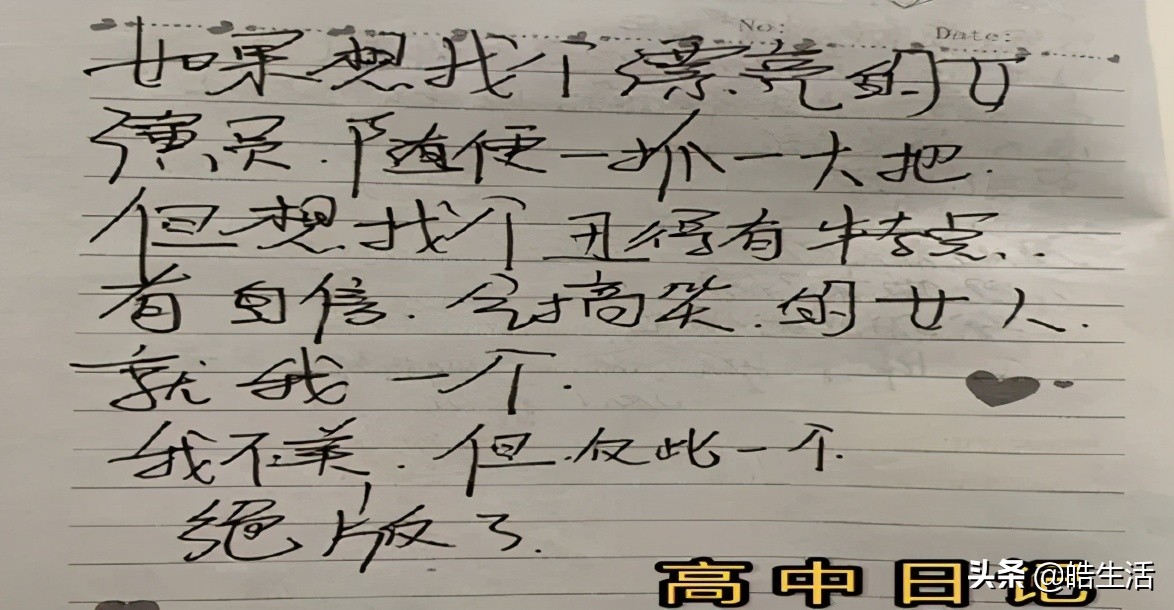 No:
Date:
如果想找个漂亮的女
演员.随便一抓一大把.
但想找个丑得有特点..
有自信.会搞笑.的女人.
就我一个.
我不美.但.仅此一个.
绝版了.
高中日记
头条@皓生活